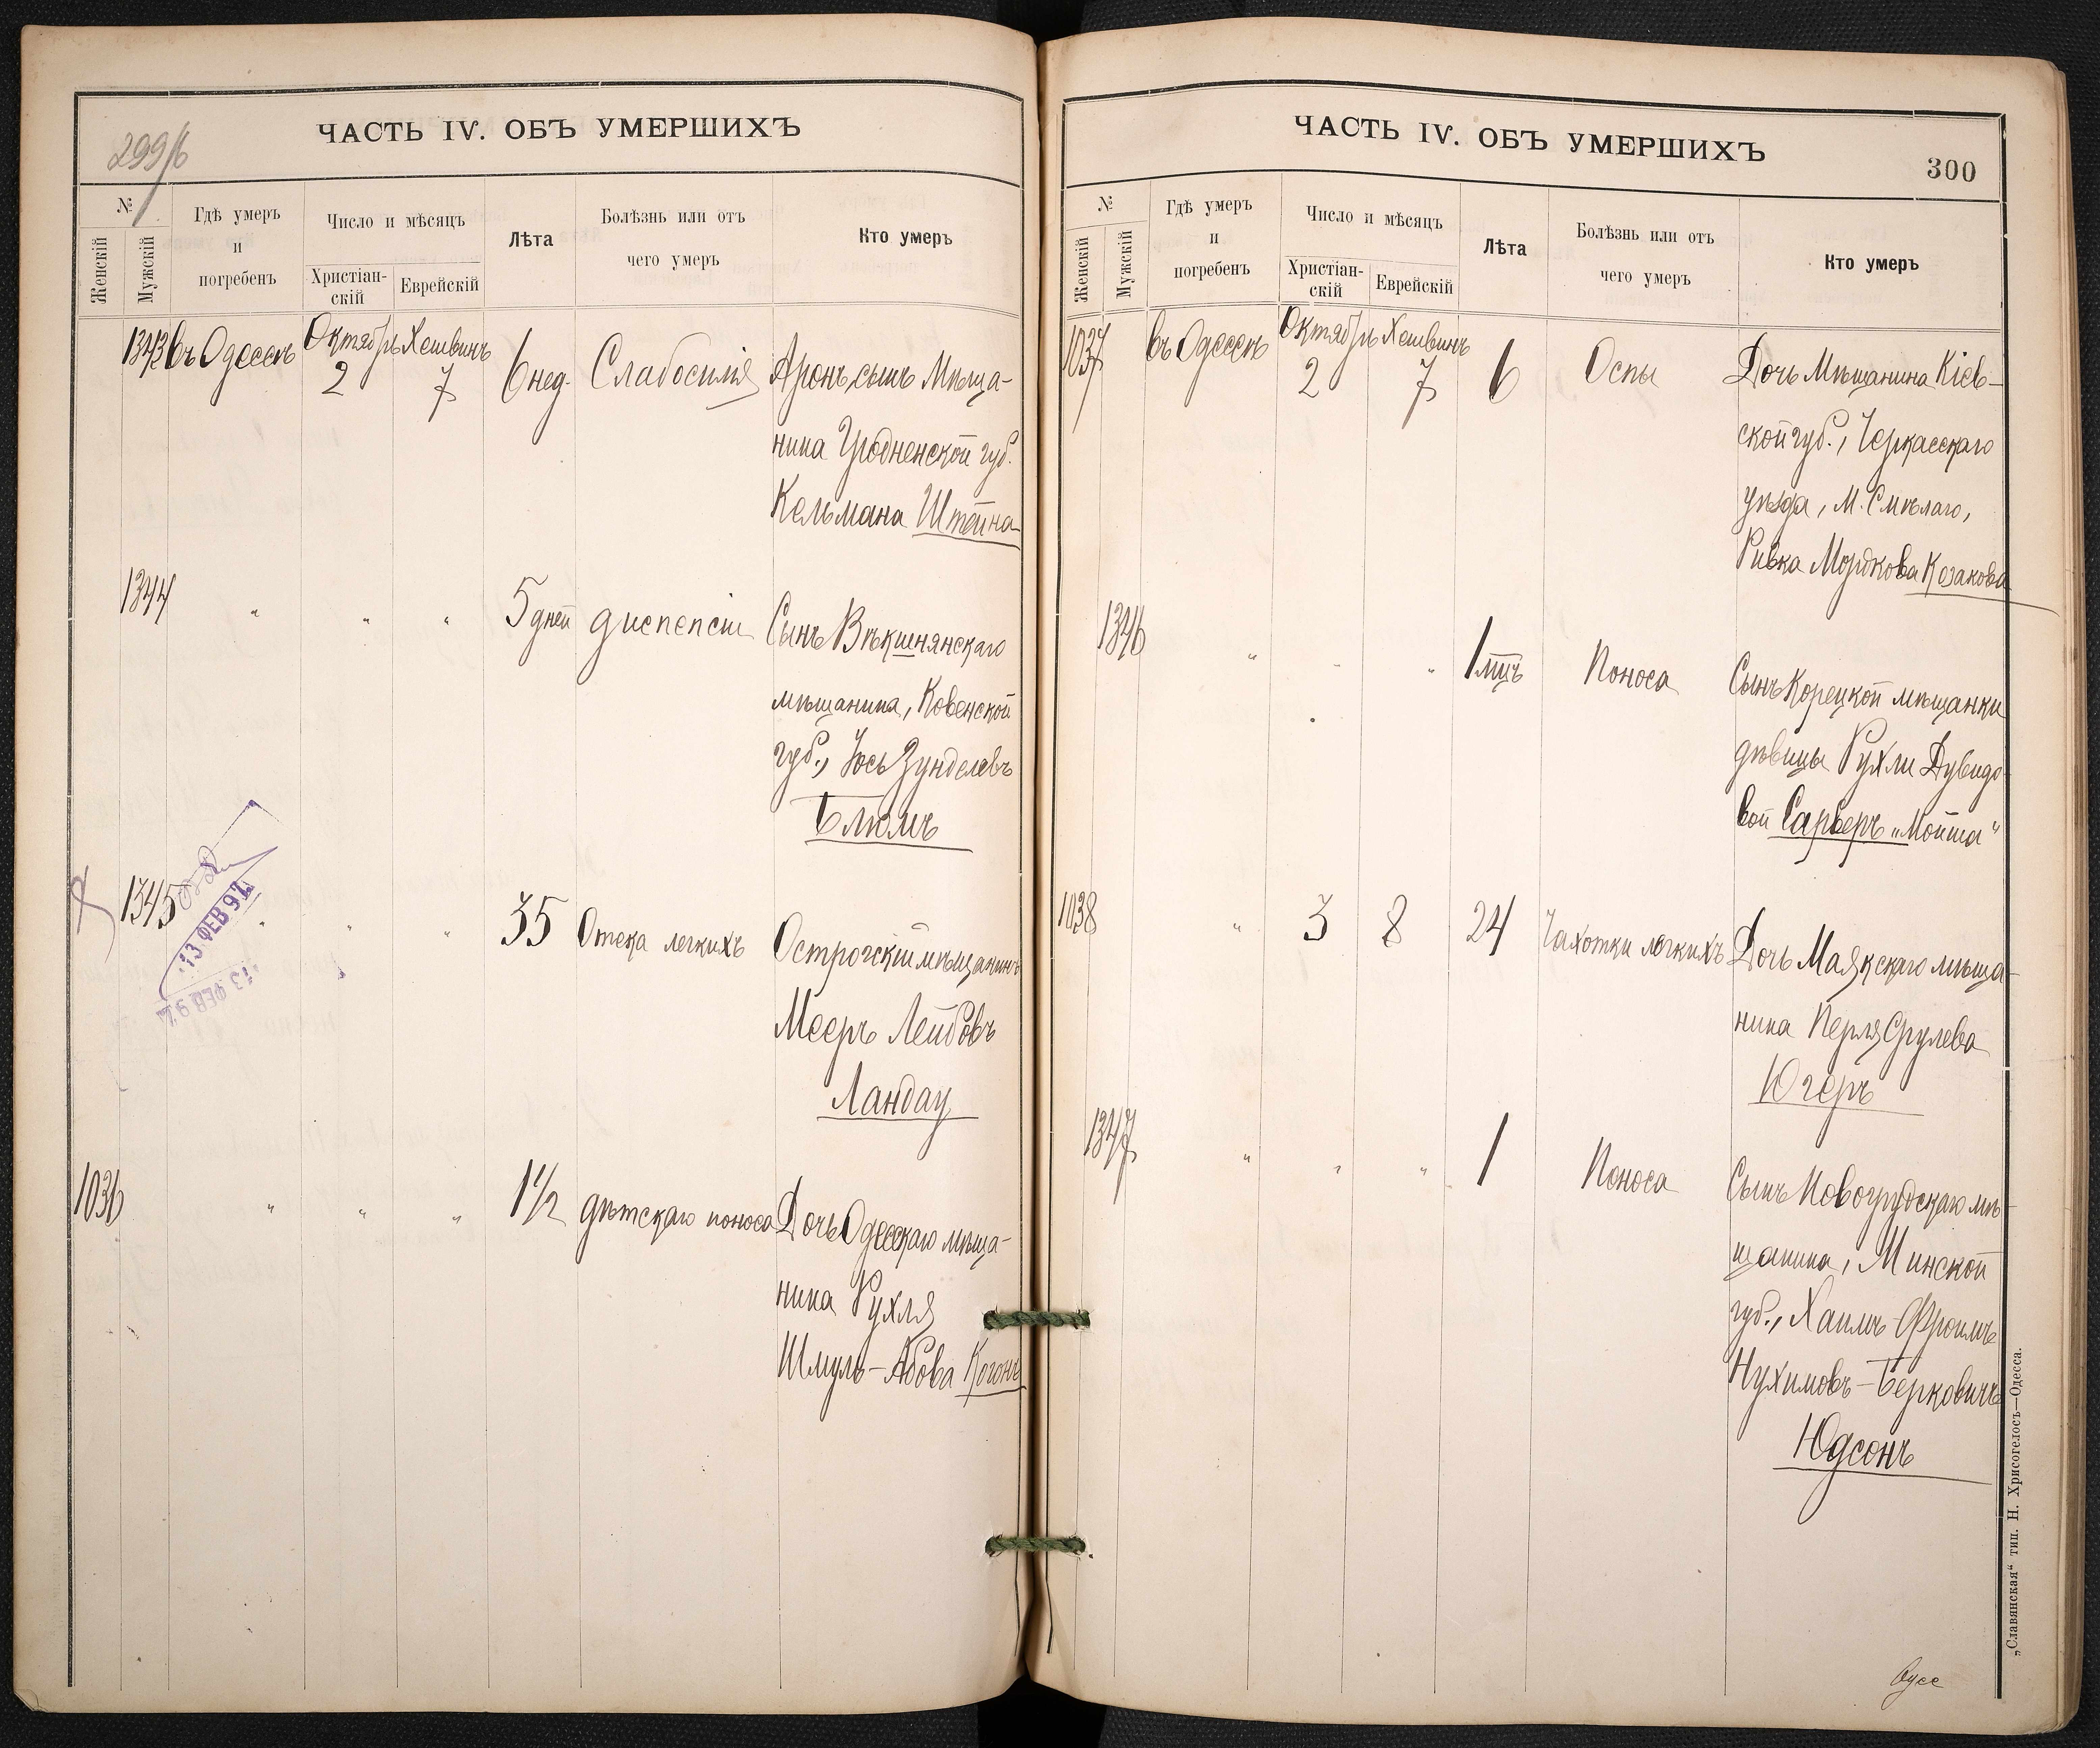 299/б
ЧАСТЬ IV. ОБЪ УМЕРШИХЪ
№
Женскій
Мужскій
Гдѣ умеръ
и
погребенъ
Число и мѣсяцъ
Христіан-
скій
Еврейскій
Лѣта
Болѣзнь или отъ
чего умеръ
Кто умеръ
1343 въ Одессѣ Октябрь 2 Хешвинъ 7 6 нед. Слабосилія Аронъ, сынъ Мѣща-
нина Гродненской губ.
Кельмана Штейна
1344 " " " 5 дней диспепсіи Сынъ Вѣкшнянскаго
мѣщанина, Ковенской
губ., Іось Зунделевъ
Блюмъ
1345 " " " 35 Отека легкихъ Острогскій мѣщанинъ
Мееръ Лейбовъ
Ландау
13 ФЕВ 97
13 ФЕВ 97
1036 " " " 1 1/2 дѣтскаго поноса Дочь Одесскаго мѣща-
нина Рухля
Шмуль-Абова Когонъ
ЧАСТЬ IV. ОБЪ УМЕРШИХЪ
300
№
Женскій
Мужскій
Гдѣ умеръ
и
погребенъ
Число и мѣсяцъ
Христіан-
скій
Еврейскій
Лѣта
Болѣзнь или отъ
чего умеръ
Кто умеръ
1037 въ Одессѣ Октябрь 2 Хешвинъ 7 6 Оспы Дочь Мѣщанина Кіев-
ской губ., Черкасскаго
уѣзда, М. Смѣлаго,
Ривка Мошкова Козакова
1346 " " " 1 мцъ Поноса Сынъ Корецкой мѣщанки
дѣвицы Рухли Дувидо-
вой Сарберъ „Мойша"
1038 " 3 8 24 Чахотки легкихъ Дочь Маякскаго мѣща-
нина Перля Срулева
Югеръ
1347 " " " 1 Поноса Сынъ Новогрудскаго мѣ-
щанина, Минской
губ., Хаимъ Фроимъ
Нухимовъ-Берковичъ
Юдсонъ
„Славянская" тип. Н. Хрисогелосъ—Одесса.